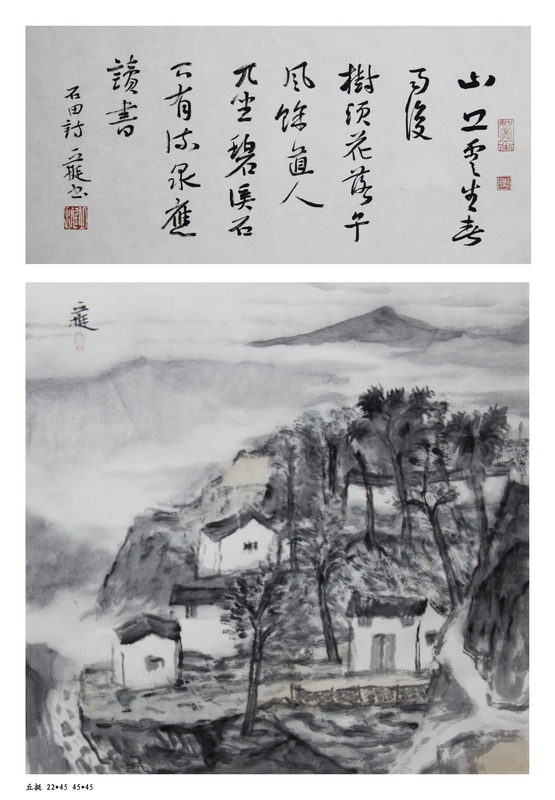 山上雲生春
雨後
樹頭花落午
風餘道人
兀坐碧溪石
只有流泉應
讀書
石田詩 丘挺书
丘挺
丘挺 22*45 45*45